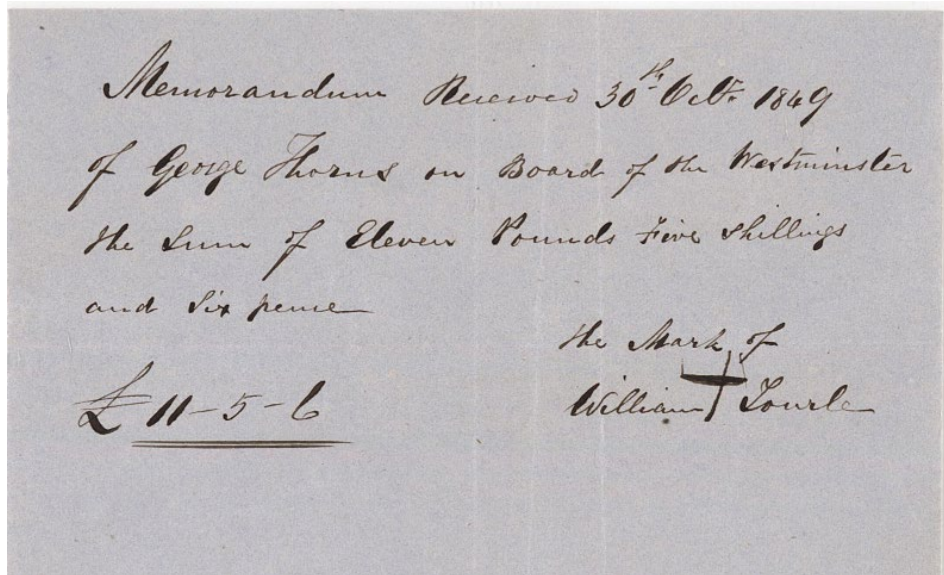 Memorandum Received 30th Octr. 1849
of George Thorns on Board of the Westminster
the Sum of Eleven Pounds Five Shillings
and Six pence
£ 11-5-6
the Mark of
William Tourle